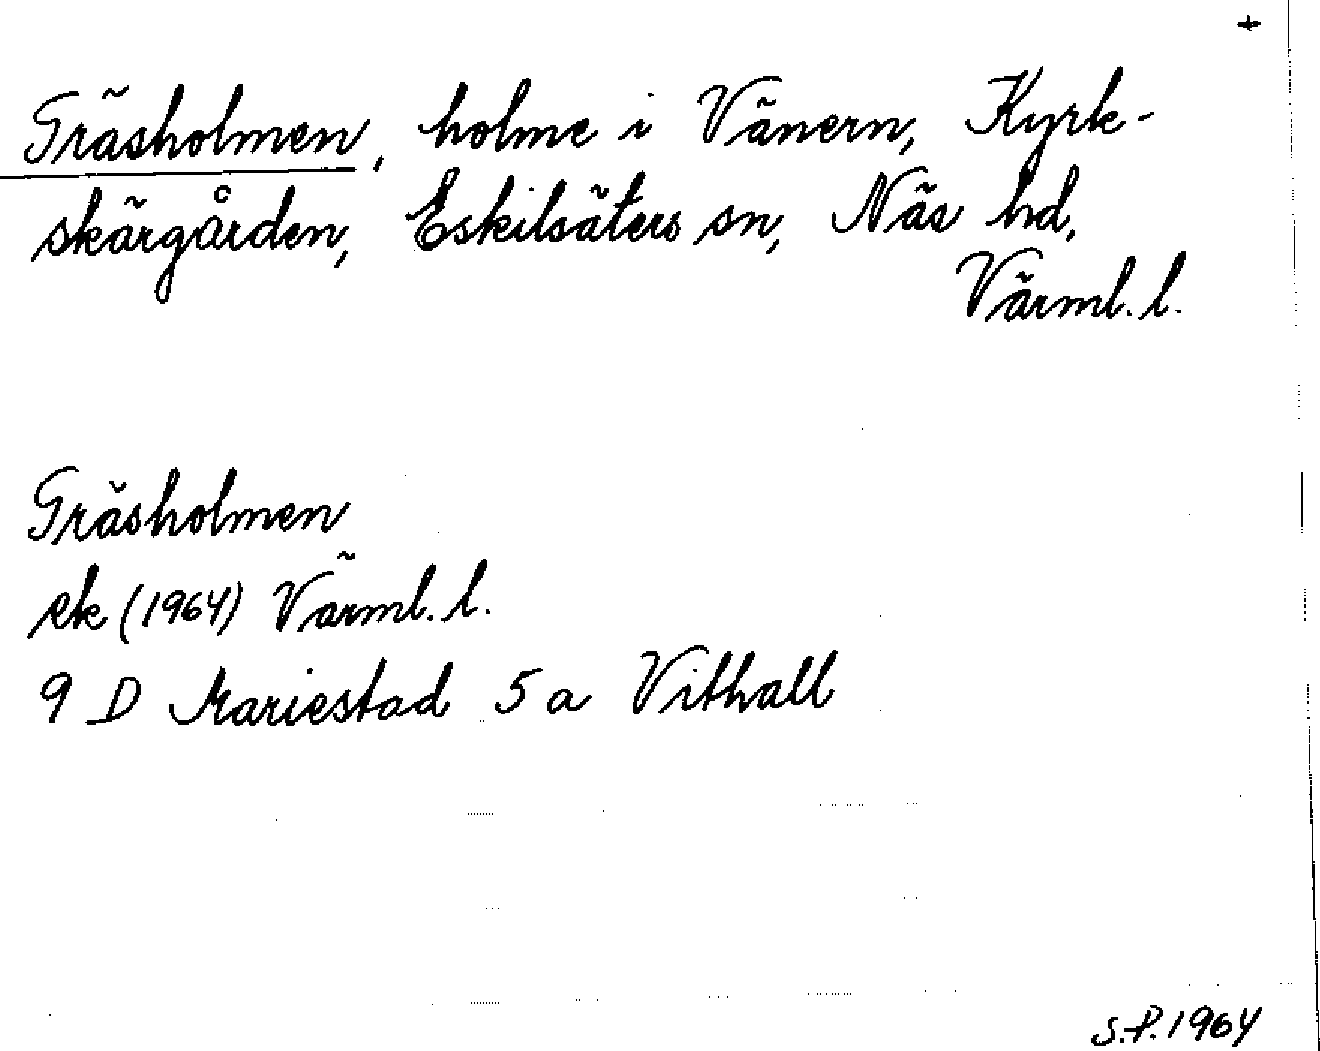 +
Gräsholmen, holme i Vänern, Kyrk-
skärgården, Eskilsäters sn, Näs hd,
Värml. l.
Gräsholmen
ek (1964) Värml. l.
9 D Mariestad 5 a Vithall
S.P. 1964